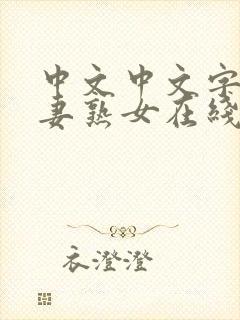 中文中文字
妻熟女在线
衣澄澄